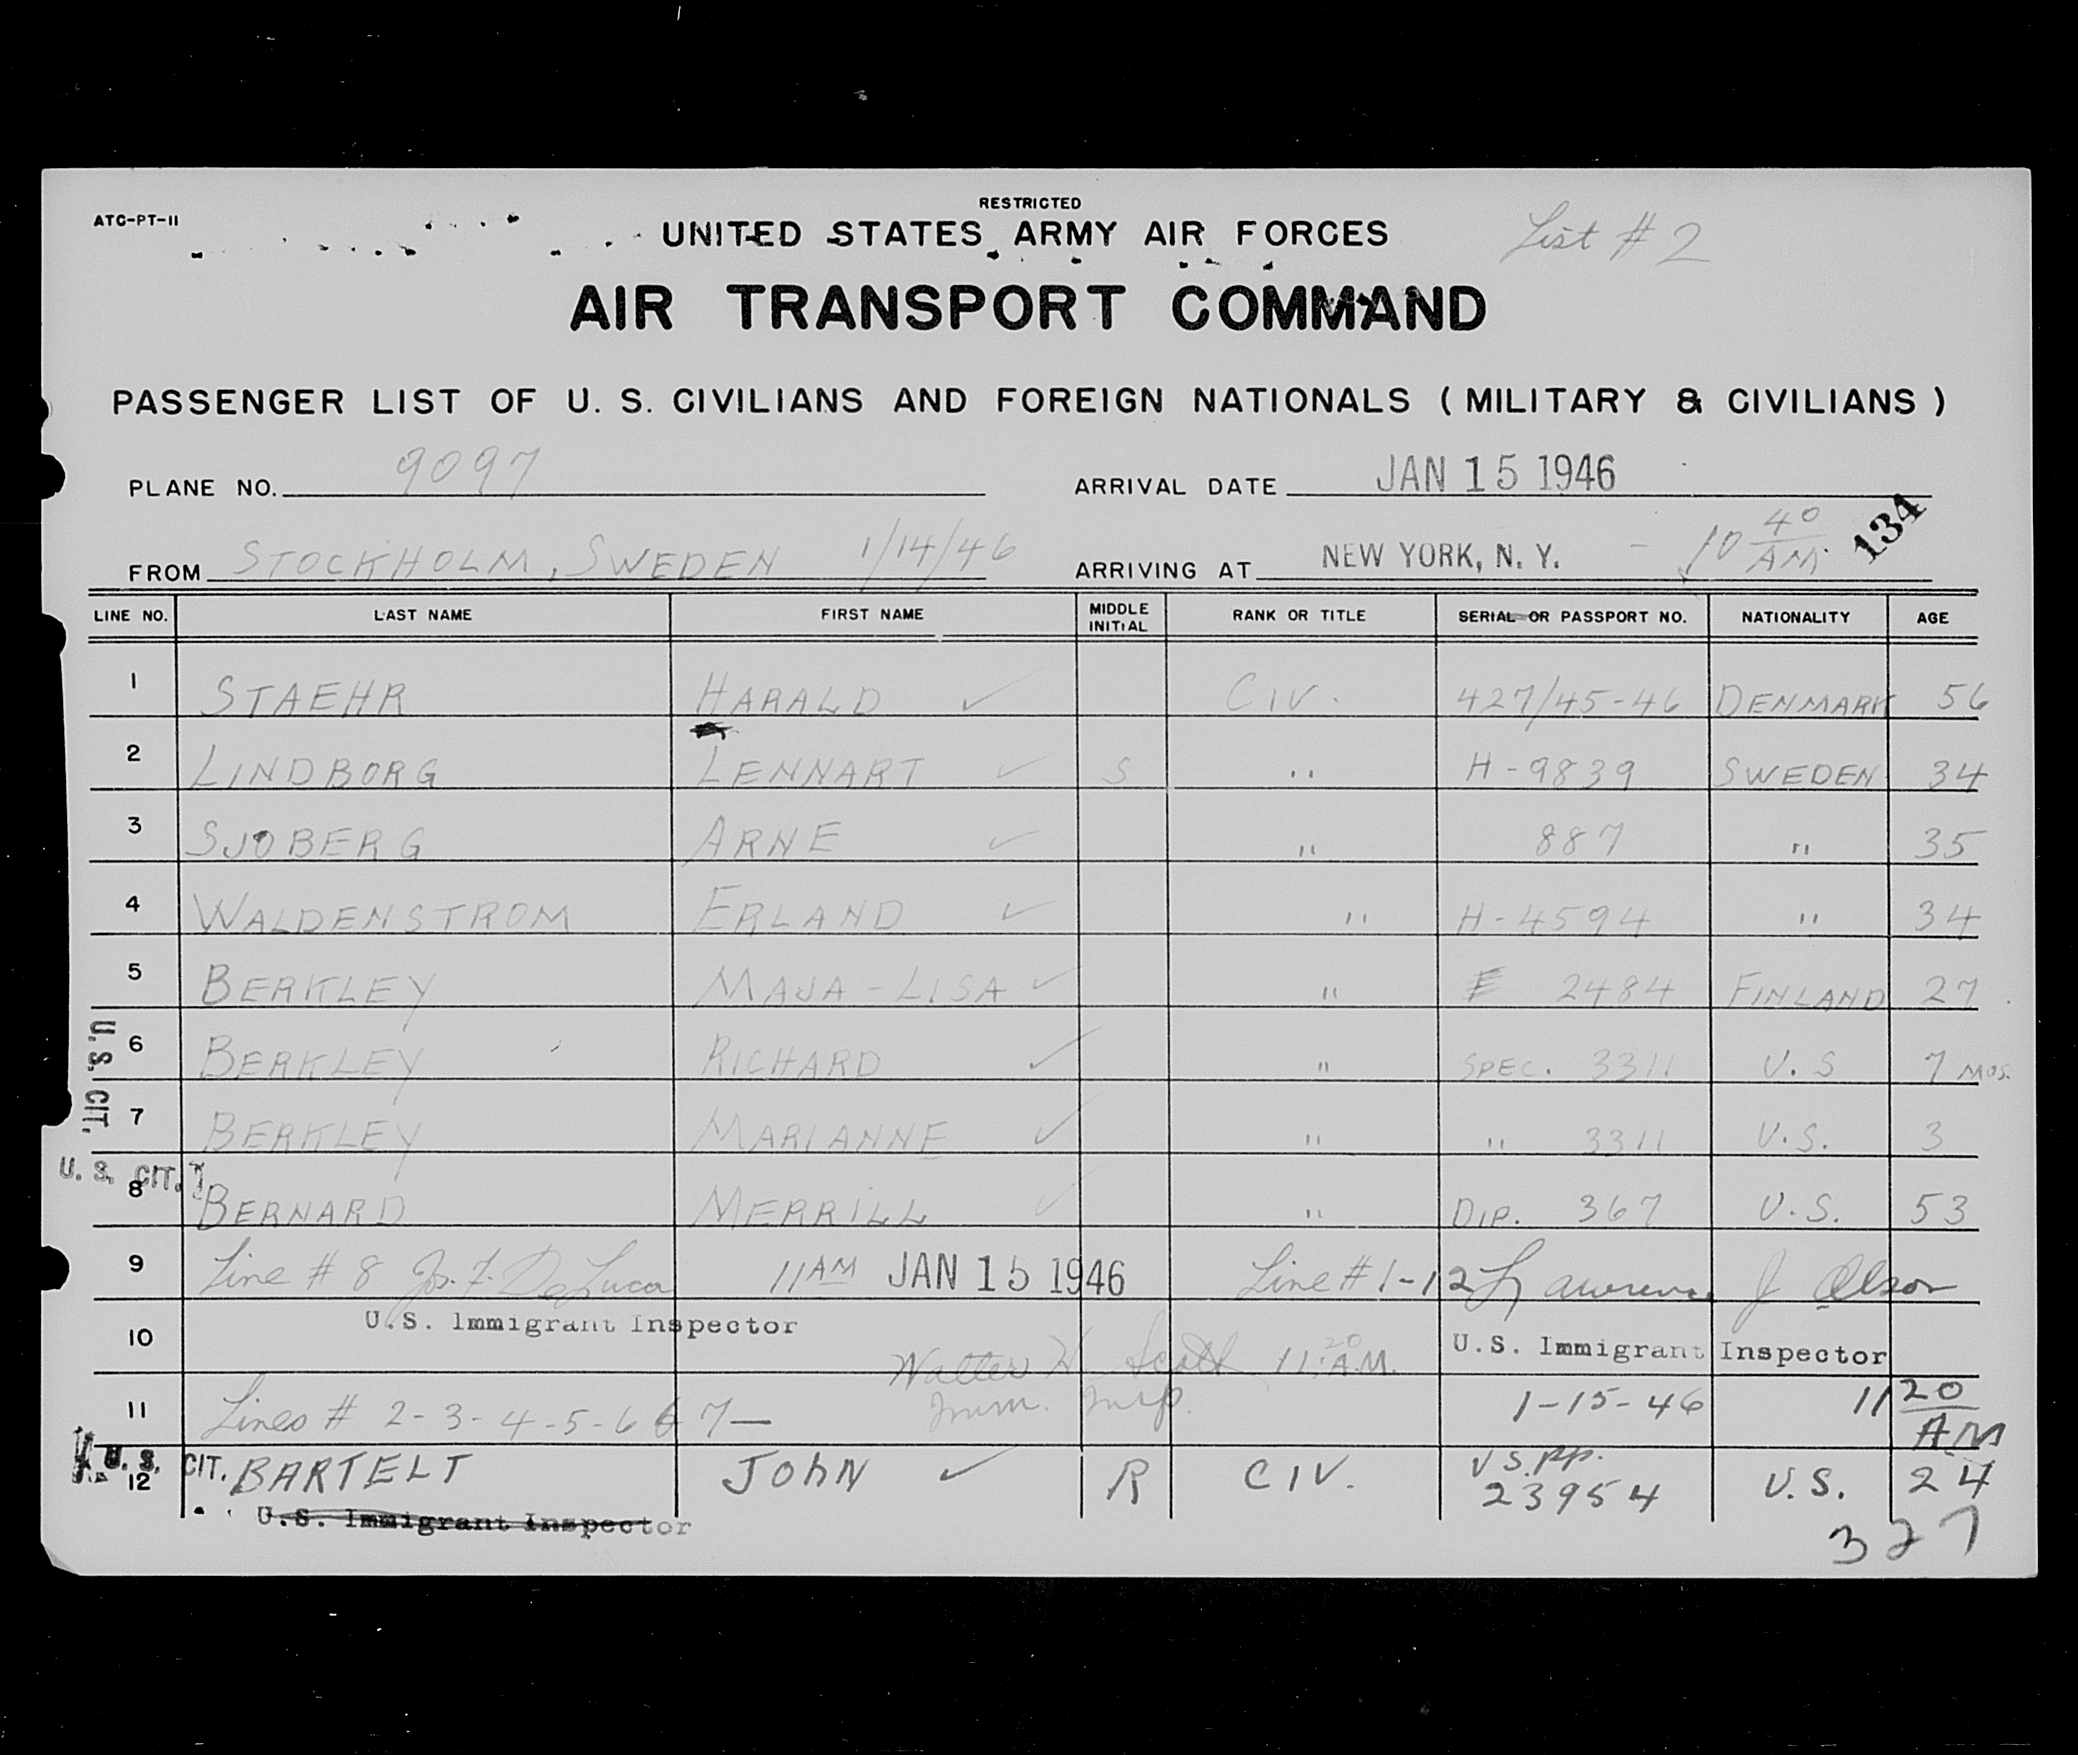 RESTRICTED
ATC-PT-11
UNITED STATES ARMY AIR FORCES
List # 2
AIR TRANSPORT COMMAND
PASSENGER LIST OF U. S. CIVILIANS AND FOREIGN NATIONALS ( MILITARY & CIVILIANS )
PLANE NO. 9097 ARRIVAL DATE JAN 15 1946
FROM STOCKHOLM, SWEDEN 1/14/46 ARRIVING AT NEW YORK, N. Y. - 10 40 AM. 134
LINE NO. LAST NAME FIRST NAME MIDDLE INITIAL RANK OR TITLE SERIAL OR PASSPORT NO. NATIONALITY AGE
1 STAEHR HARALD ✓ CIV. 427/45-46 DENMARK 56
2 LINDBORG LENNART ✓ S " H-9839 SWEDEN 34
3 SJOBERG ARNE ✓ " 887 " 35
4 WALDENSTROM ERLAND ✓ " H-4594 " 34
5 BERKLEY MAJA-LISA ✓ " E 2484 FINLAND 27
U. S. CIT.
6 BERKLEY RICHARD ✓ " SPEC. 3311 U.S 7 MOS.
7 BERKLEY MARIANNE ✓ " " 3311 U.S. 3
U. S. CIT.
8 BERNARD MERRILL ✓ " DIP. 367 U.S. 53
9 Line # 8 Jos. F. DeLuca 11 AM JAN 15 1946 Line # 1-12 Lawrence J Olson
U.S. Immigrant Inspector
10 Walter H Scott 11:20 A.M. U.S. Immigrant Inspector
Imm. Insp.
11 Lines # 2-3-4-5-6 & 7— 1-15-46 11 20 AM
U. S. CIT.
12 BARTELT JOHN ✓ R CIV. US.PP. 23954 U.S. 24
U.S. Immigrant Inspector
327